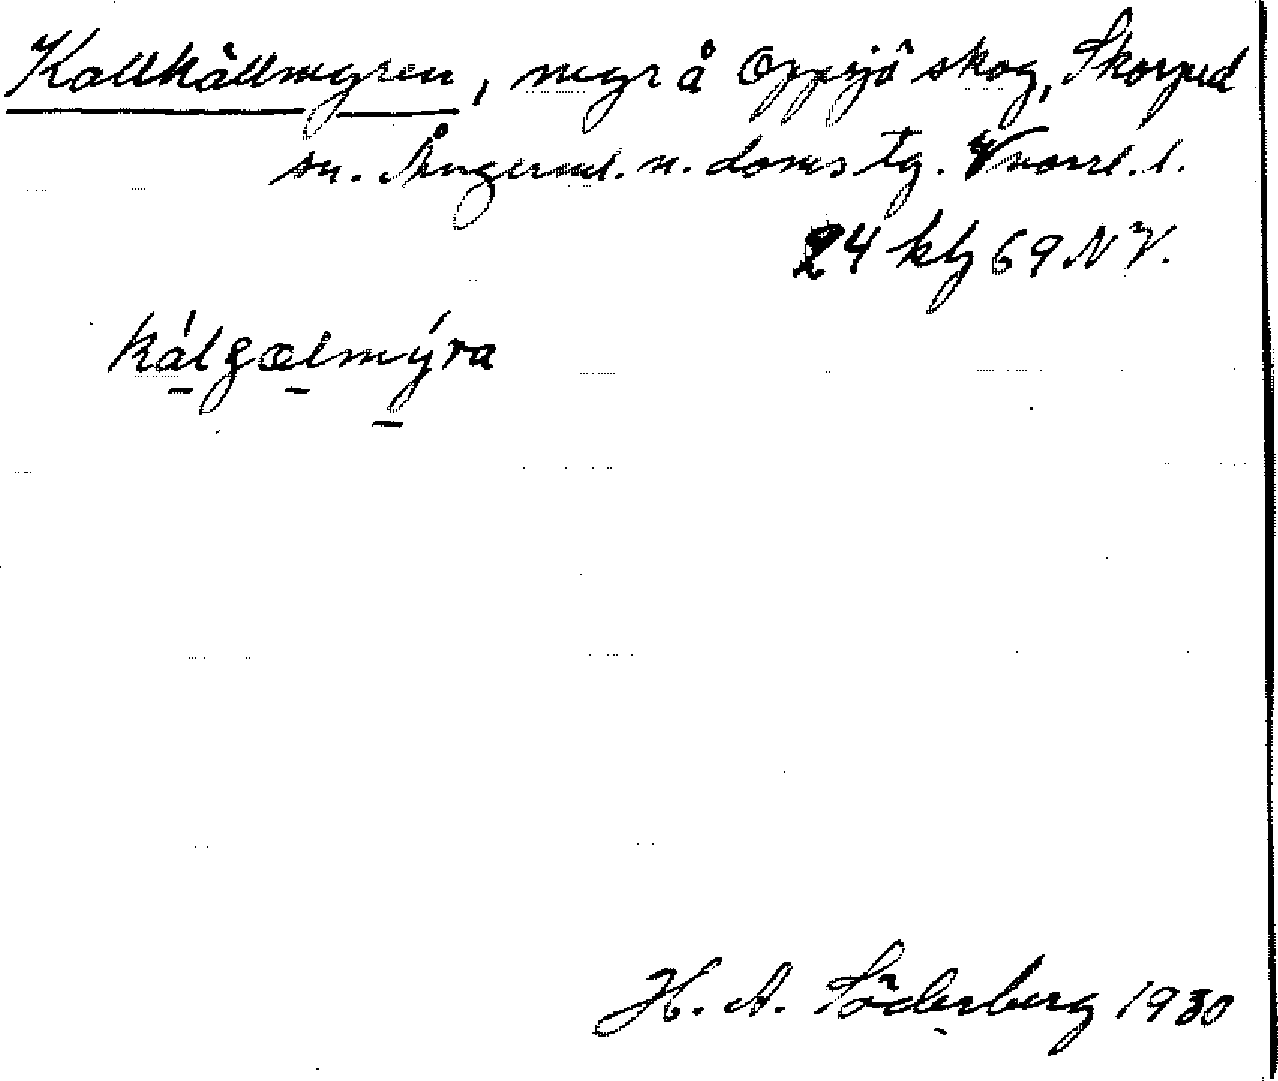 Kallkällmyren, myr å Oppsjö skog, Skorped
sn. Ångerml. n. doms tg. Vnorrl. l.
24 kbl 69 NV.
kálgælmýra
H. A. Söderberg 1930